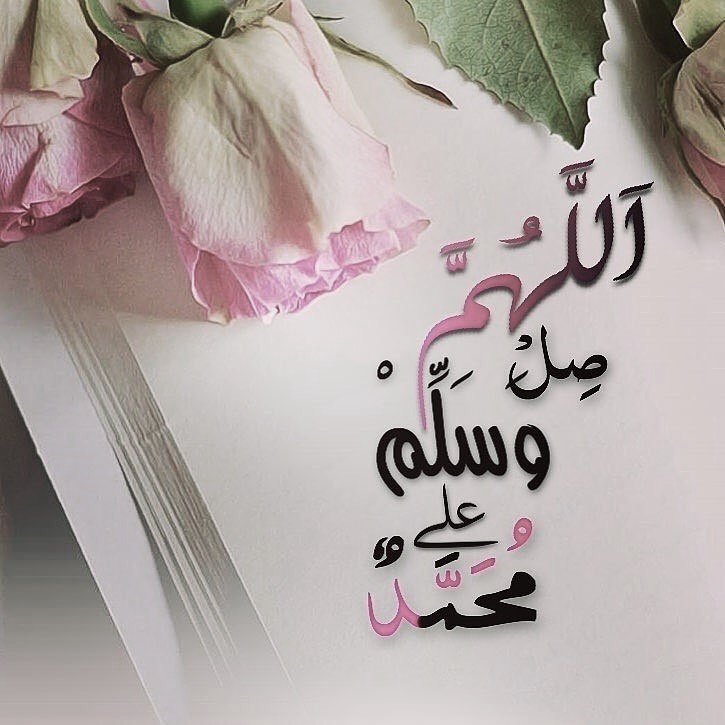 اَللَّهُمَّ
صِلْ
وَسَلِّمْ
علي
مُحَمَّدٌ